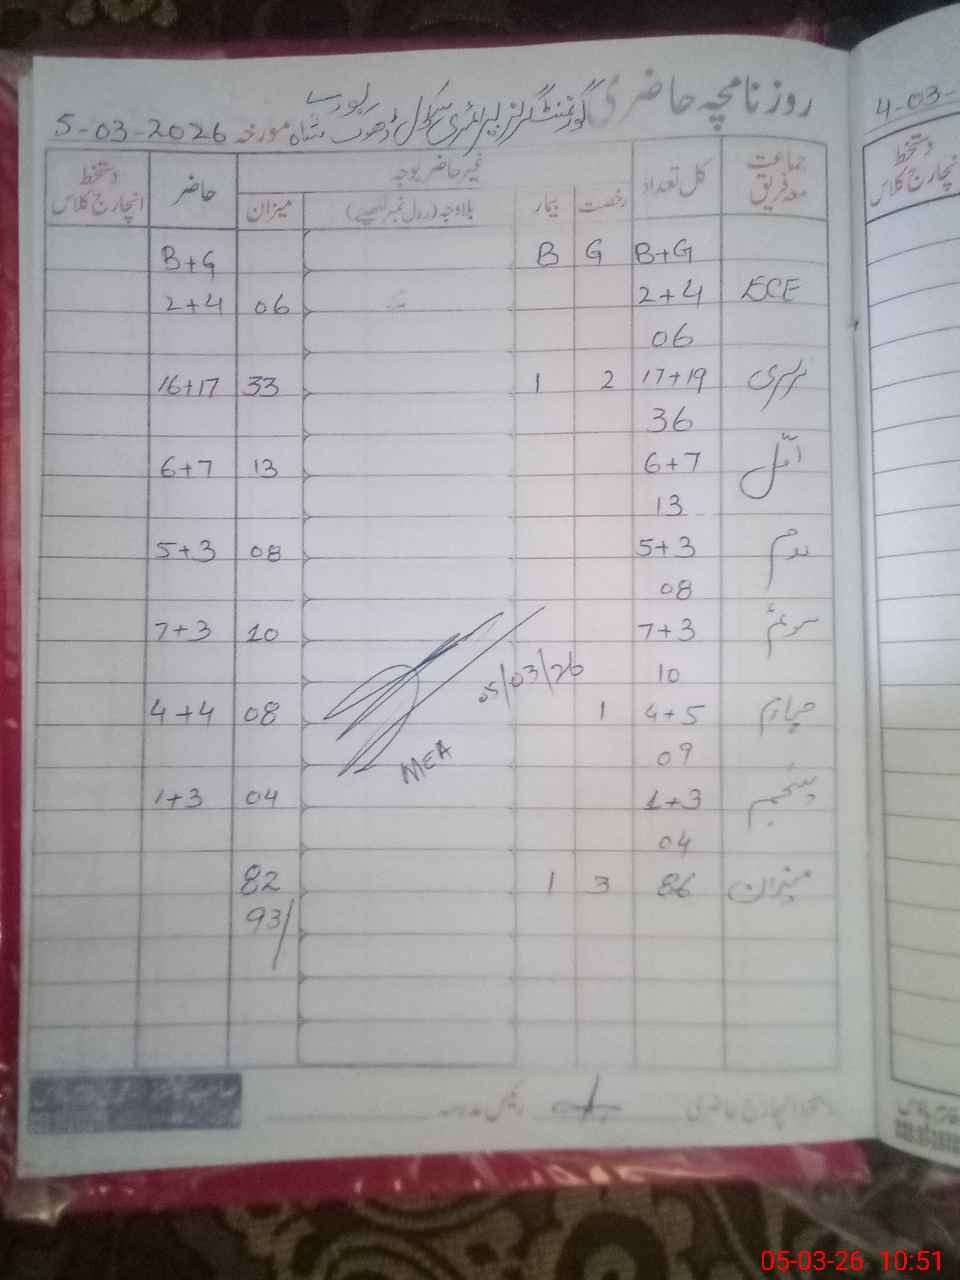 روزنامچہ حاضری گورنمنٹ گرلز پرائمری سکول ڈھوک شاہ مورخہ 5-03-2026
جماعت معہ فریق کل تعداد غیر حاضر بوجہ حاضر دستخط انچارج کلاس
رخصت بیمار بلاوجہ (رول نمبر لکھیے) میزان
B+G G B B+G
ECE 2+4 06 2+4
06
نرسری 17+19 2 1 33 16+17
36
اول 6+7 13 6+7
13
دوم 5+3 08 5+3
08
سوئم 7+3 10 7+3
10
چہارم 4+5 1 08 4+4
09
پنجم 1+3 04 1+3
04
میزان 86 3 1 82
93/
05/03/26
MEA
دستخط انچارج حاضری
4-03-
دستخط
انچارج کلاس
05-03-26 10:51